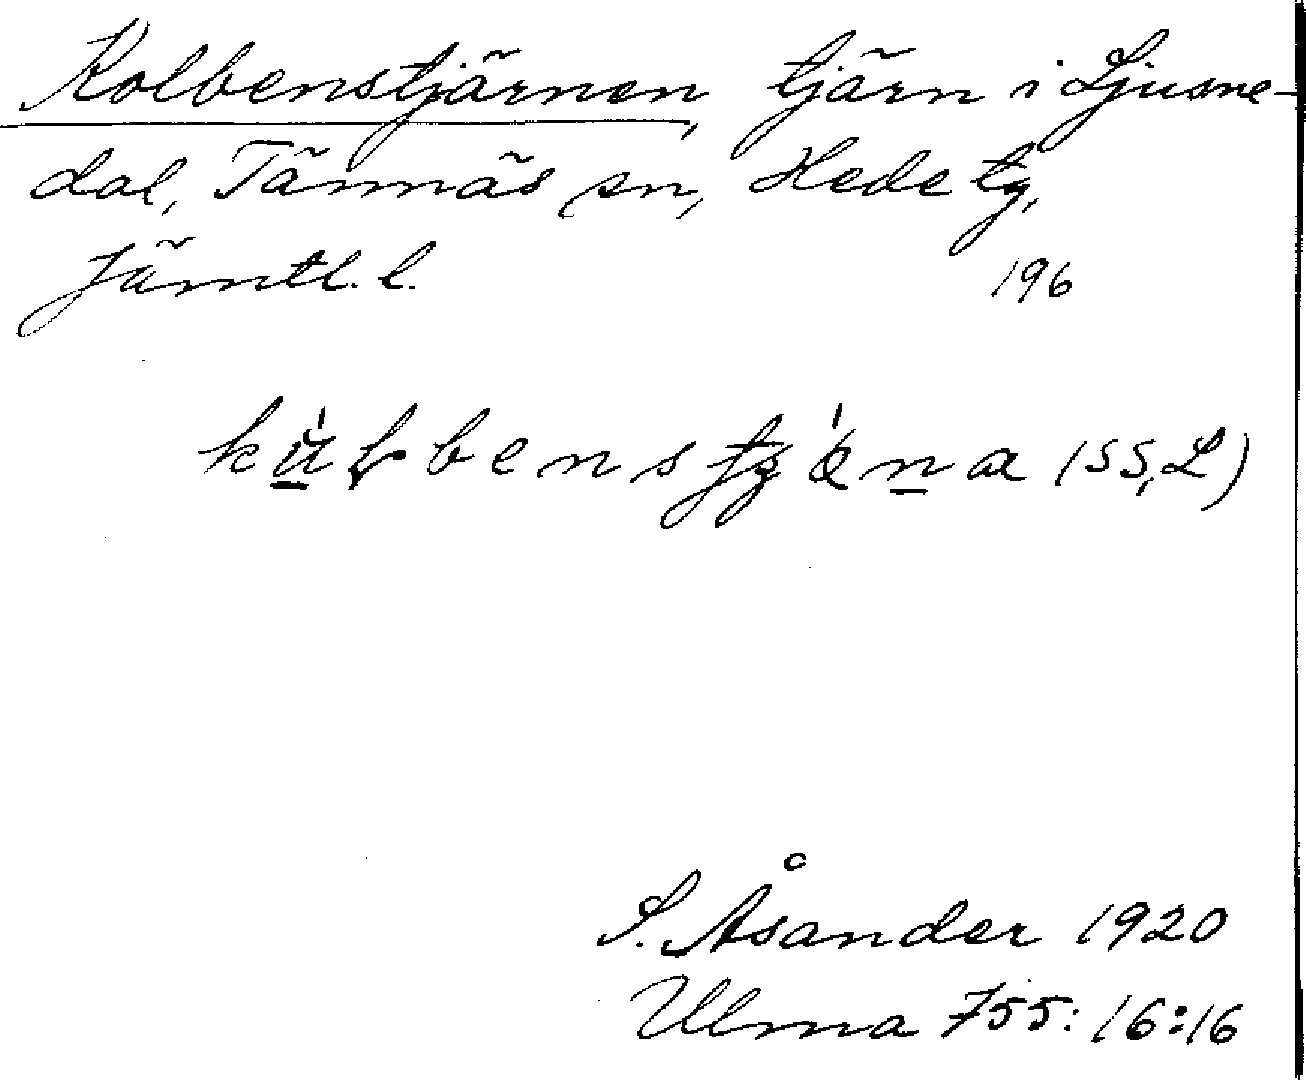 Kolbenstjärnen, tjärn i Ljusne-
dal, Tännäs sn, Hede tg,
Jämtl. l.
196
(SS, L)
S. Åsander 1920
Ulma 755: 16:16